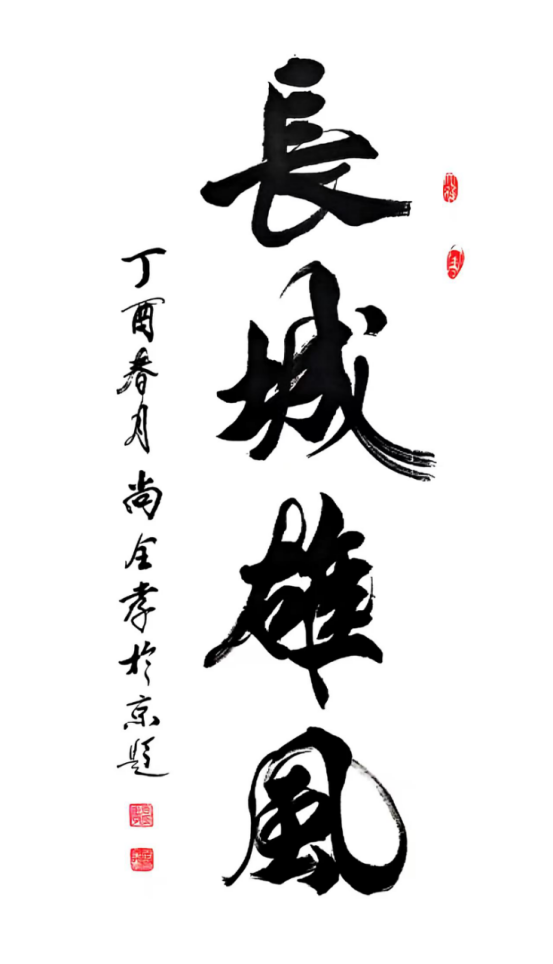 長城雄風
丁酉春月尚全孝於京題